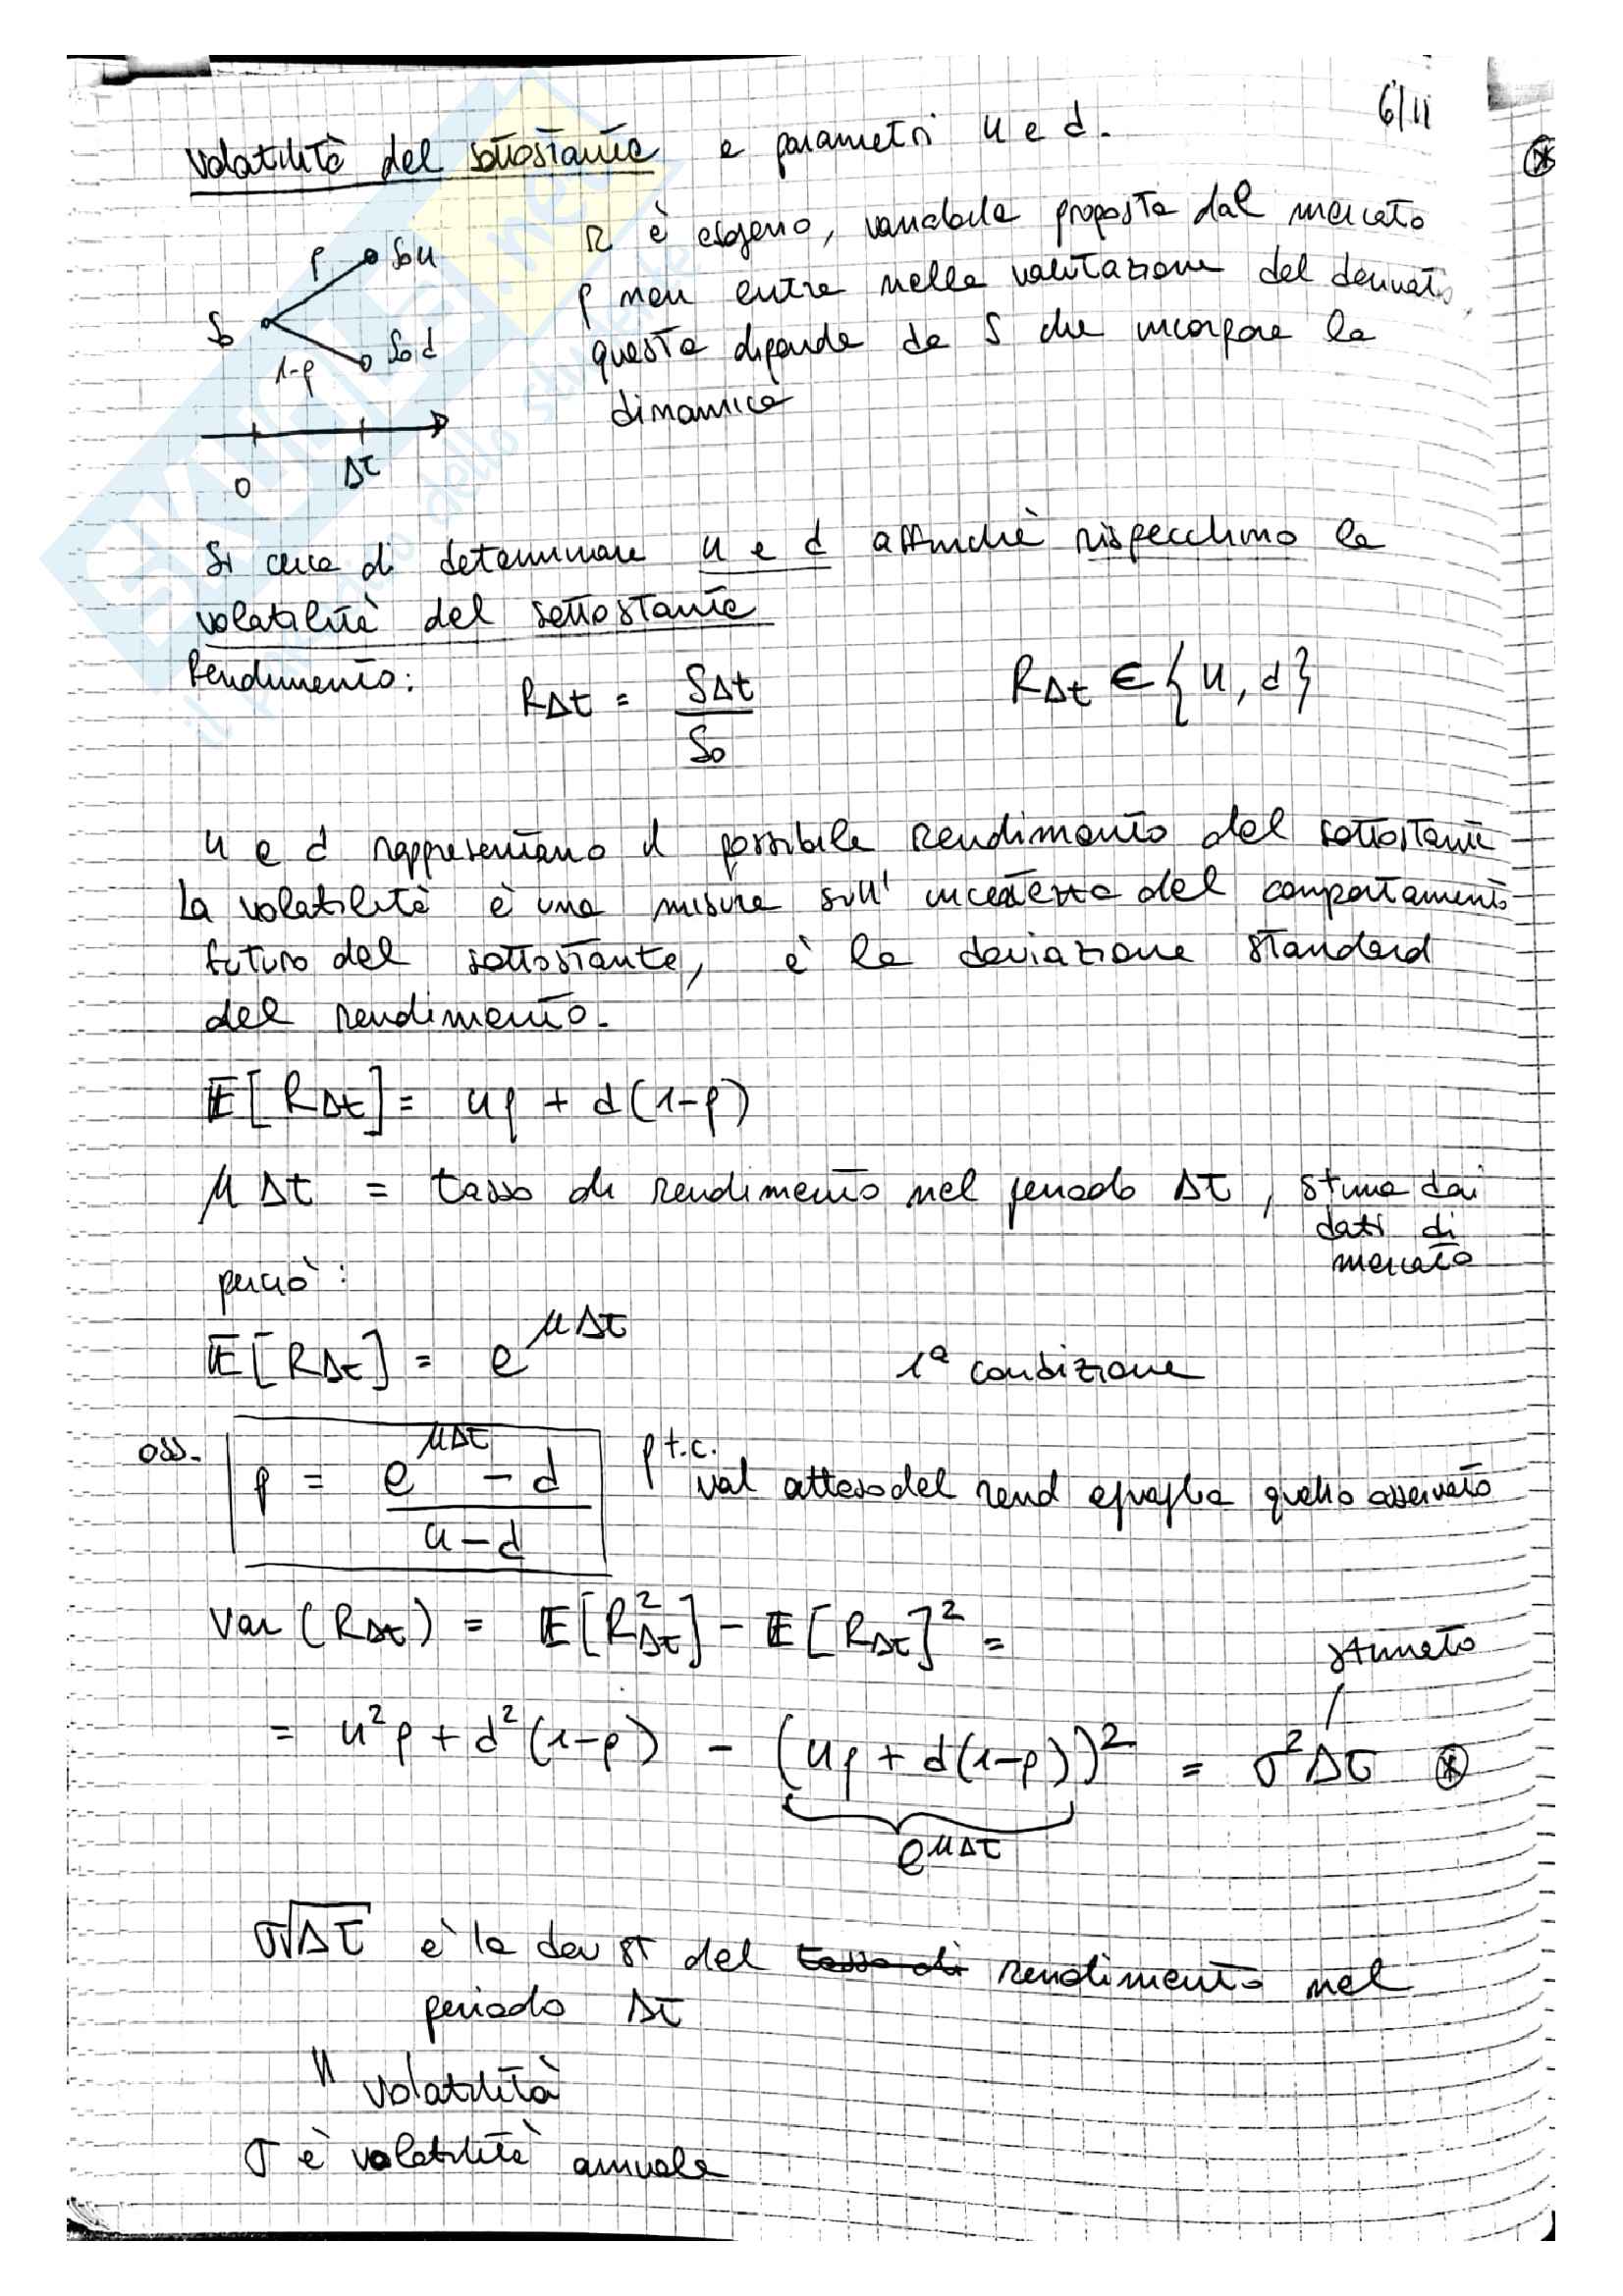 6/11
Volatilità del sottostante e parametri u e d.
R è esogeno, variabile proposta dal mercato
p non entra nella valutazione del derivato,
questa dipende da S che incorpora la
dinamica
p S₀u
S₀
1-p S₀d
0 Δt
Si cerca di determinare u e d affinchè rispecchino la
volatilità del sottostante
Rendimento: R_Δt = S_Δt / S₀ R_Δt ∈ {u, d}
u e d rappresentano il possibile rendimento del sottostante
La volatilità è una misura sull' incertezza del comportamento
futuro del sottostante, è la deviazione standard
del rendimento.
E[R_Δt] = up + d(1-p)
μΔt = tasso di rendimento nel periodo Δt, stima dai
dati di
mercato
perciò:
E[R_Δt] = e^{μΔt} 1ª condizione
oss. p = (e^{μΔt} - d) / (u - d) p t.c.
val atteso del rend eguaglia quello osservato
Var(R_Δt) = E[R²_Δt] - E[R_Δt]² =
stimato
= u²p + d²(1-p) - (up + d(1-p))² = σ²Δt ⊛
e^{μΔt}
σ√Δt è la dev st del tasso di rendimento nel
periodo Δt
" volatilità
σ è volatilità annuale
SKUOLA.net
il paradiso dello studente